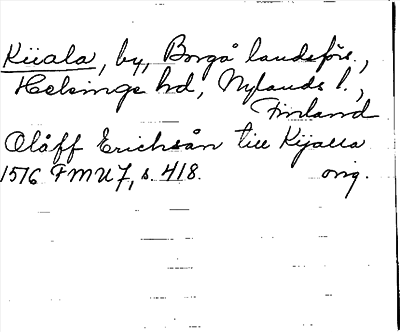 Kiiala, by, Borgå landsförs.,
Helsinge hd, Nylands l.,
Finland
Olåff Erichsån till Kijalla
1516 FMU 7, s. 418. orig.